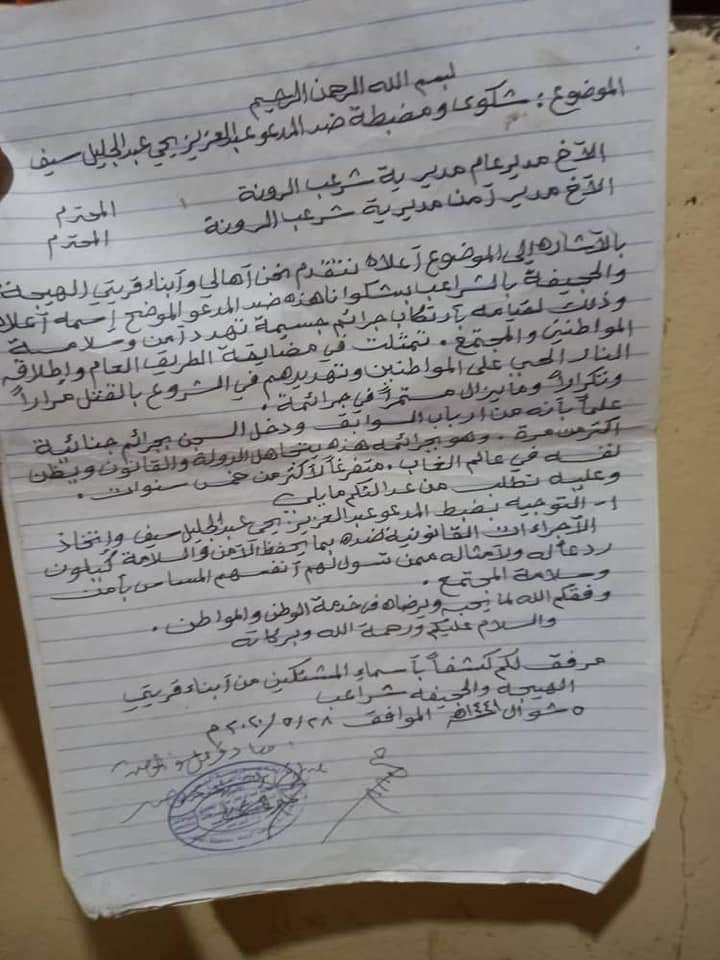 بسم الله الرحمن الرحيم
الموضوع : شكوى ومضبطة ضد المدعو عبدالعزيز يحي عبدالجليل سيف
الأخ مدير عام مديرية شرعب الرونة المحترم
الأخ مدير أمن مديرية شرعب الرونة المحترم
بالأشاره إلى الموضوع أعلاه نتقدم نحن أهالي وأبناء قريتي الهيجة
والجيفة بالشراعب بشكوانا هذه ضد المدعو الموضح إسمه أعلاه
وذلك لقيامه بأرتكاب جرائم جسيمة تهدد أمن وسلامة
المواطنين والمجتمع . تمثلت في مضايقة الطريق العام وإطلاق
النار الحي على المواطنين وتهديدهم في الشروع بالقتل مراراً
وتكراراً وما يزال مستمراً في جرائمة .
علماً بأنه من أرباب السوابق ودخل السجن بجرائم جنائية
أكثر من مرة . وهو بجرائمه هذه يتجاهل الدولة والقانون ويظن
نفسه في عالم الغاب . متفرغاً لأكثر من خمس سنوات .
وعليه نطلب من عدالتكم مايلي
١- التوجيه بضبط المدعو عبدالعزيز يحي عبدالجليل سيف وإتخاذ
الأجراءات القانونية ضده بما يحفظ الأمن والسلامة كيلون
ردعاً له ولأمثاله ممن تسول لهم أنفسهم المساس بأمن
وسلامة المجتمع .
وفقكم الله لما يحب ويرضاه في خدمة الوطن والمواطن .
والسلام عليكم ورحمة الله وبركاتة
مرفق لكم كشفاً بأسماء المشتكين من أبناء قريتي
الهيجة والجيفه شراعب
٥ شوال ١٤٤١هـ الموافق ٢٨/٥/٢٠٢٠م